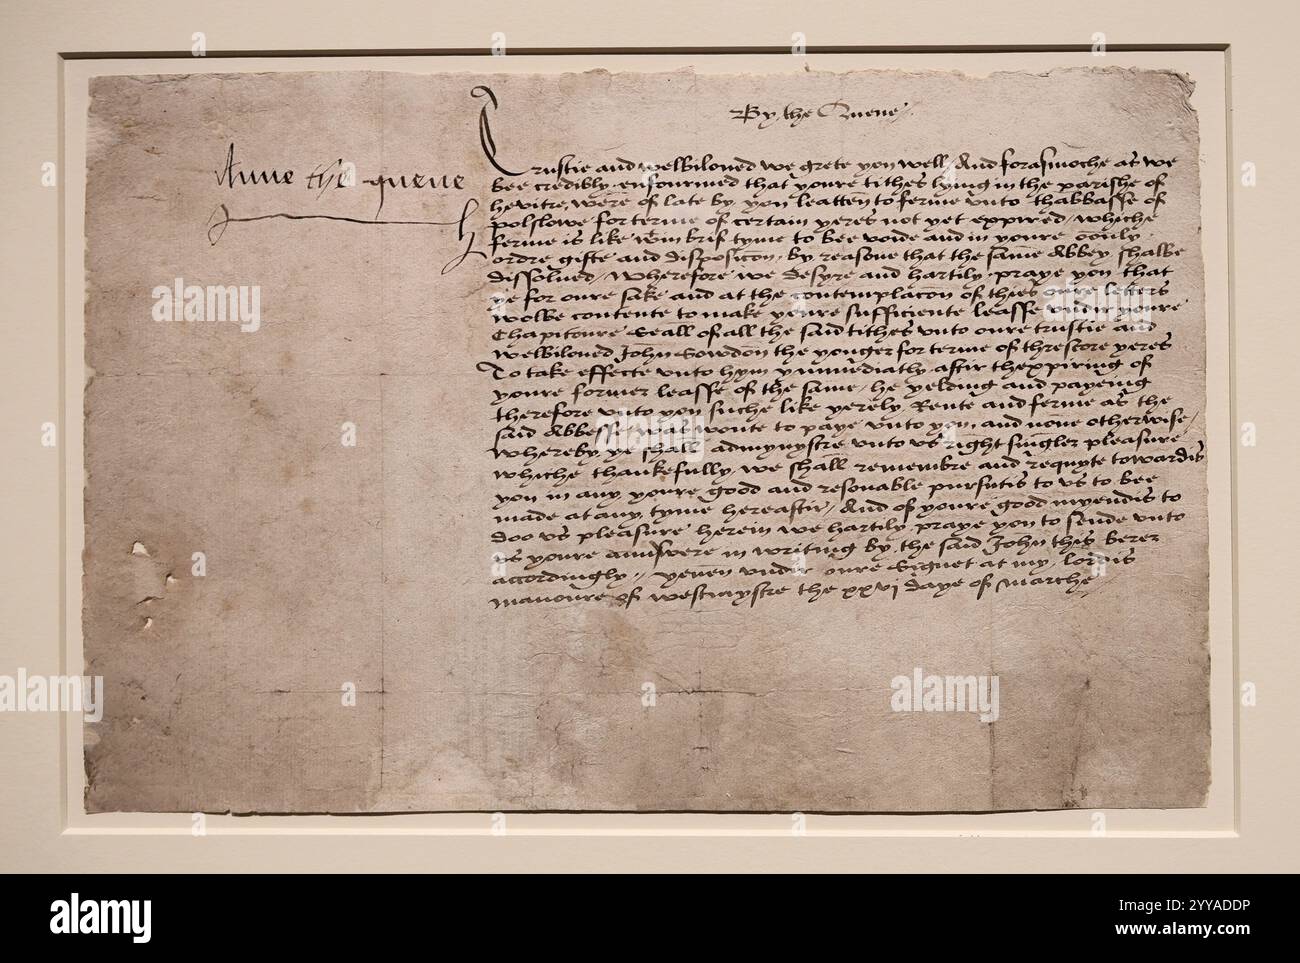 By the Quene
Anne the quene
Trustie and welbiloued we grete you well / And forasmoche as we
bee credibly enfourmed that youre tithes lying in the parishe of
hevitre, were of late by you leatten to ferme unto thabbasse of
polslowe for terme of certain yeres not yet expired / whiche
ferme is like wtin brif tyme to bee voide and in youre oonly
ordre gifte and disposicon, by reasone that the same Abbey shalbe
dissolued / Wherefore we desyre and hartily praye you that
ye for oure sake and at the contemplacon of thies oure letters
wolbe contente to make youre sufficiente leasse under youre
Chapitoure Seall of all the said tithes unto oure trustie and
welbiloued John Sowdon the yonger for terme of threscore yeres
To take effecte unto hym ymmediatly aftir thexpiring of
youre former leasse of the same / he yelding and payeing
therefore unto you suche like yerely Rente and ferme as the
said Abbesse was wonte to paye unto you, and none otherwise /
whereby ye shall admynystre unto us right singler pleasure
whiche thankefully we shall remembre and requyte towardis
you in any youre good and resonable pursutis to us to bee
made at any tyme hereaftir / And of youre good myendis to
doo us pleasure herein we hartily praye you to sende unto
us youre answere in writing by the said John this berer
accordingly // yeven under oure Signet at my lordis
manoure of westmystre the xxvj daye of Marche
alamy
Image ID: 2YYADDP
www.alamy.com